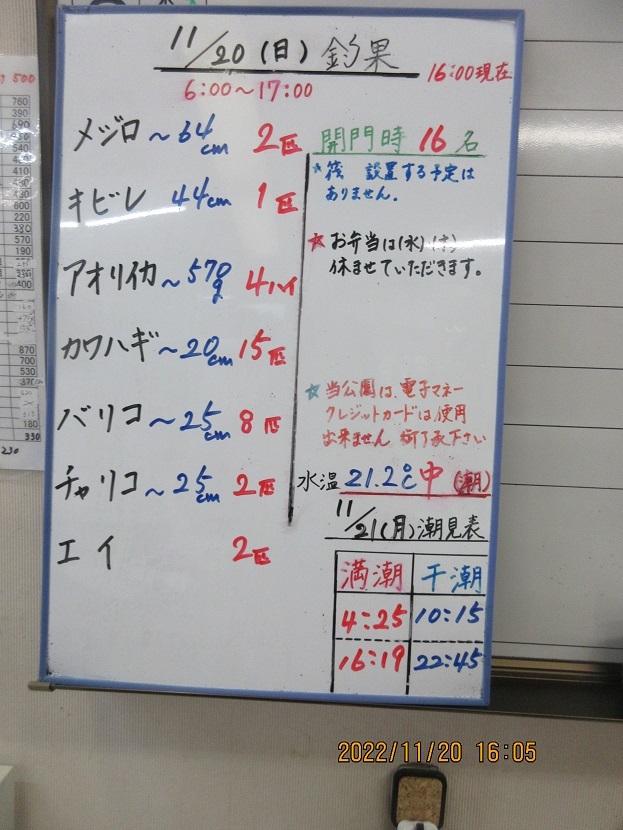 11/20(日)釣果
16:00現在
6:00～17:00
メジロ～64cm 2匹
キビレ 44cm 1匹
アオリイカ～570g 4ハイ
カワハギ～20cm 15匹
バリコ～25cm 8匹
チャリコ～25cm 2匹
エイ 2匹
開門時 16名
★筏 設置する予定は
ありません。
★お弁当は(水)(木)
休ませていただきます。
☆当公園は、電子マネー
クレジットカードは使用
出来ません
水温 21.2℃ 中(潮)
11/21(月)潮見表
満潮 干潮
4:25 10:15
16:19 22:45
2022/11/20 16:05
500
760
390
690
540
410
490
600
220
380
570
190
400
870
700
530
180
330
230